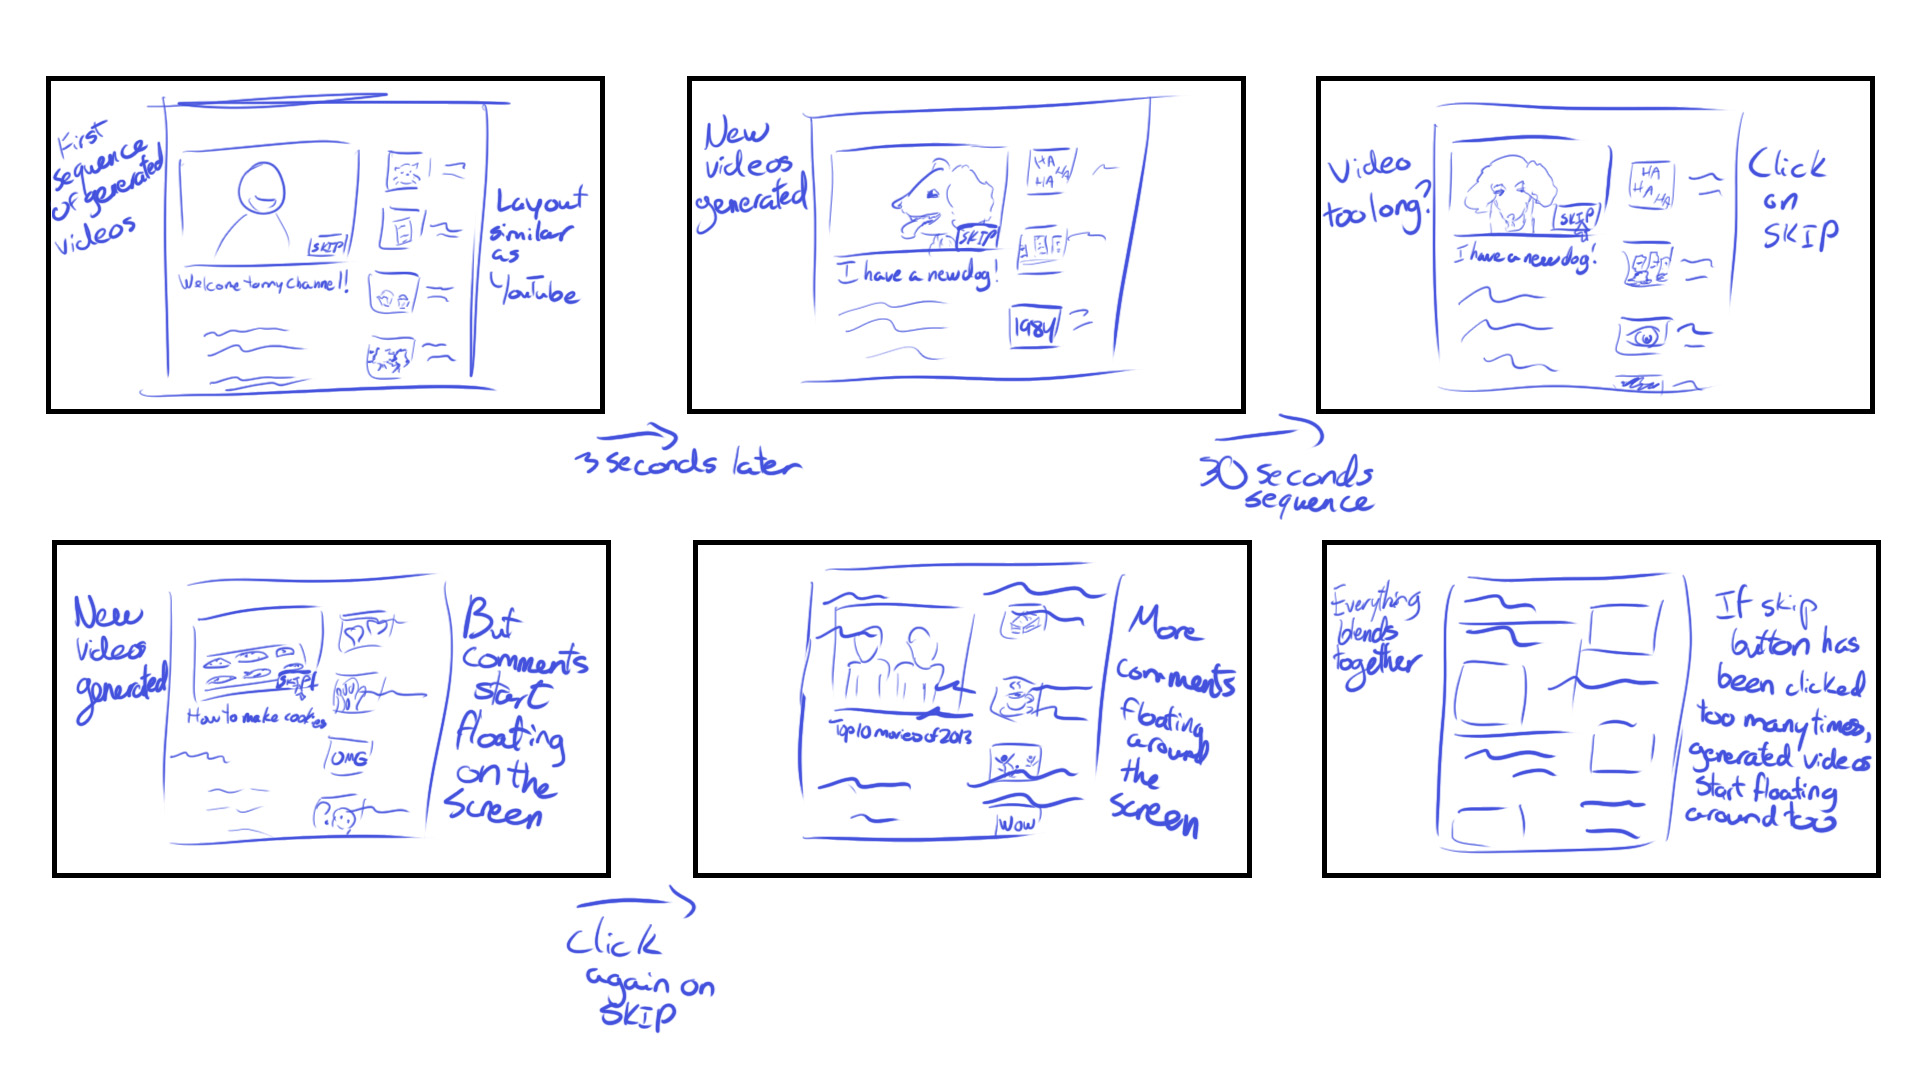 First
sequence
of generated
videos
SKIP
Welcome to my Channel!
Layout
similar
as
YouTube
3 seconds later
New
videos
generated
SKIP
I have a new dog!
HA
HA
HA
HA
1984
30 seconds
sequence
Video
too long?
SKIP
I have a new dog!
HA
HA
HA
Click
on
SKIP
New
videos
generated
SKIP
How to make cookies
OMG
?
But
comments
start
floating
on the
screen
Click
again on
SKIP
Top 10 movies of 2013
WOW
More
comments
floating
around
the
screen
Everything
blends
together
If skip
button has
been clicked
too many times,
generated videos
start floating
around too